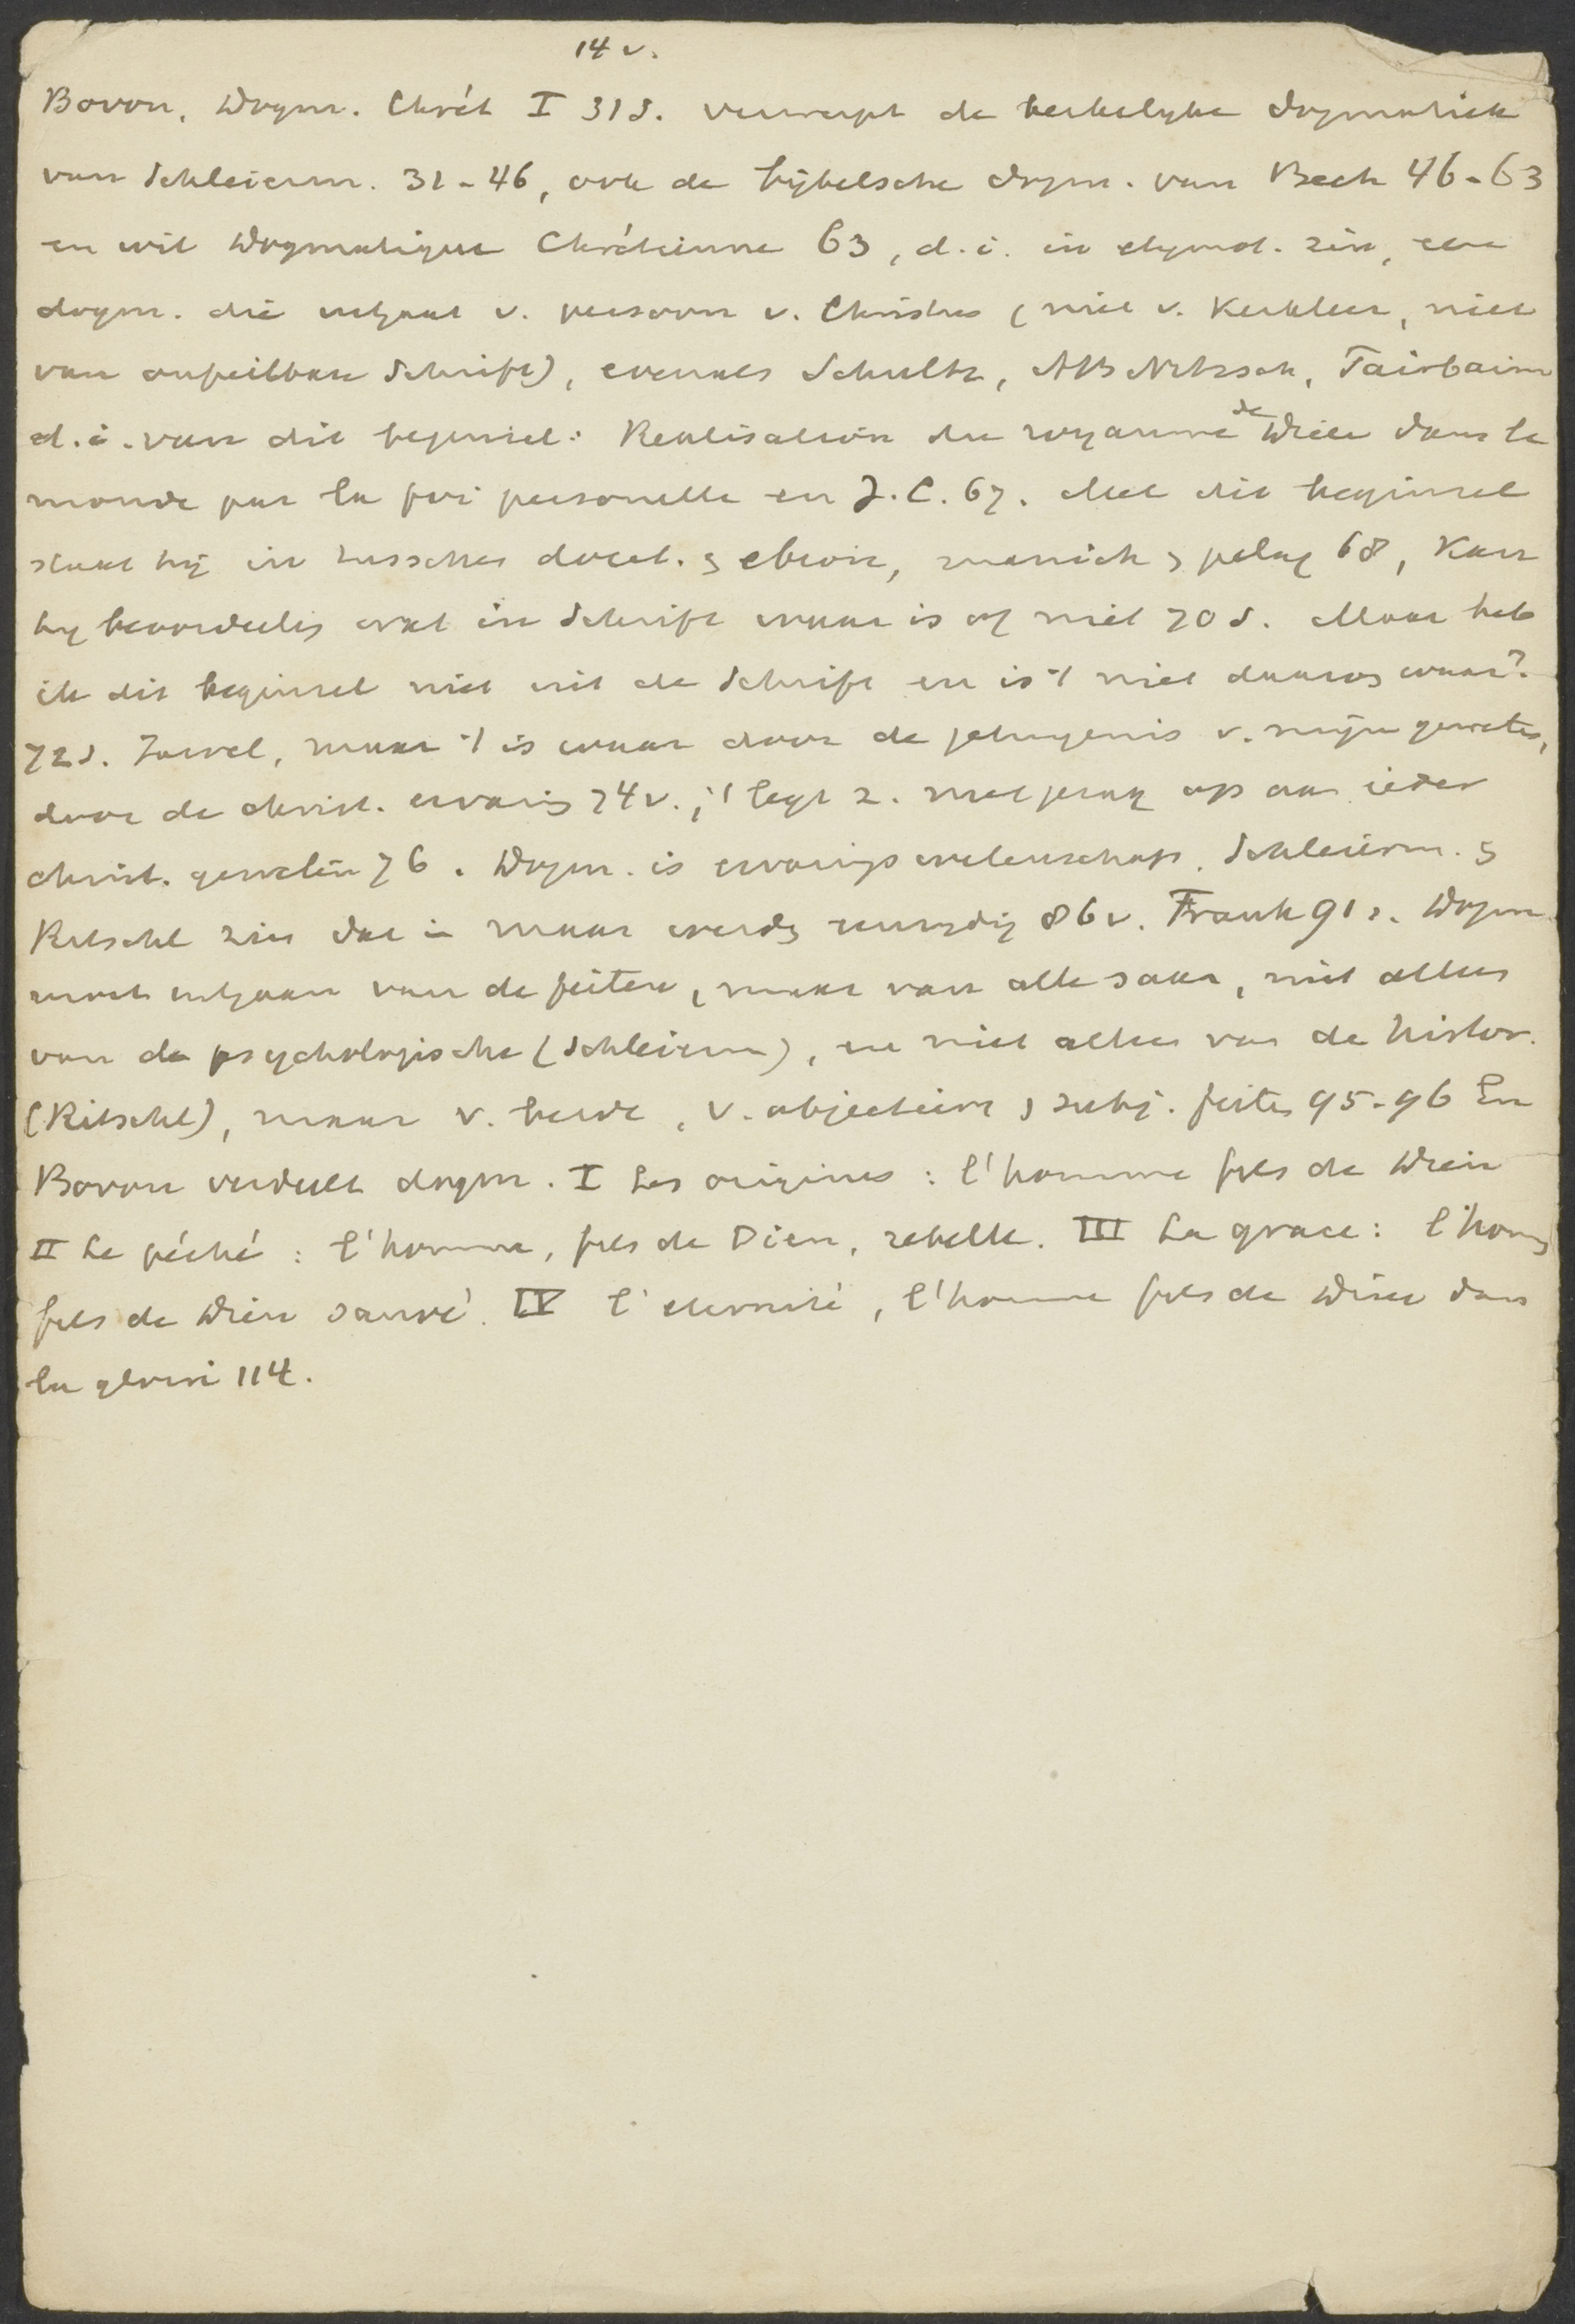 14 v.
Bovon, Dogm. Chrét I 31 s. verwerpt de kerkelyke dogmatiek
van Schleierm. 31-46, ook de bijbelsche dogm. van Beck 46-63
en wil Dogmatique Chrétienne 63, d.i. in etymol. zin, eene
dogm. die uitgaat v. persoon v. Christus (niet v. Kerkleer, niet
van onfeilbare Schrift), evenals Schultz, AB Nitzsch, Fairbairn
d.i. van dit beginsel: Realisation du royaume de Dieu dans le
monde par la foi personelle en J.C. 67. Met dit beginsel
staat hij in tusschen docet. & ebion, manich & pelag 68, Kan
hy beoordeelen wat in Schrift waar is of niet 70 s. Maar heb
ik dit beginsel niet uit de Schrift en is 't niet daarom waar?
72 s. Jawel, maar 't is waar door de getuigenis v. mijn geweten,
door de christ. ervaring 74 v.; 't legt z. met gezag op aan ieder
christ. geweten 76. Dogm. is ervaringswetenschap. Schleierm. &
Ritschl zien dat in maar eenzydig 86 v. Frank 91 s. Dogm
moet uitgaan van de feiten, maar van alle saam, niet alleen
van de psychologische (Schleierm), en niet alleen van de histor.
(Ritschl), maar v. beide, v. objectieve & subj. feiten 95-96 En
Bovon verdeelt dogm. I Les origines: l'homme fils de Dieu
II Le péché: l'homme, fils de Dieu, rebelle. III La grace: l'homme
fils de Dieu sauvé. IV l'eternité, l'homme fils de Dieu dans
la gloire 114.